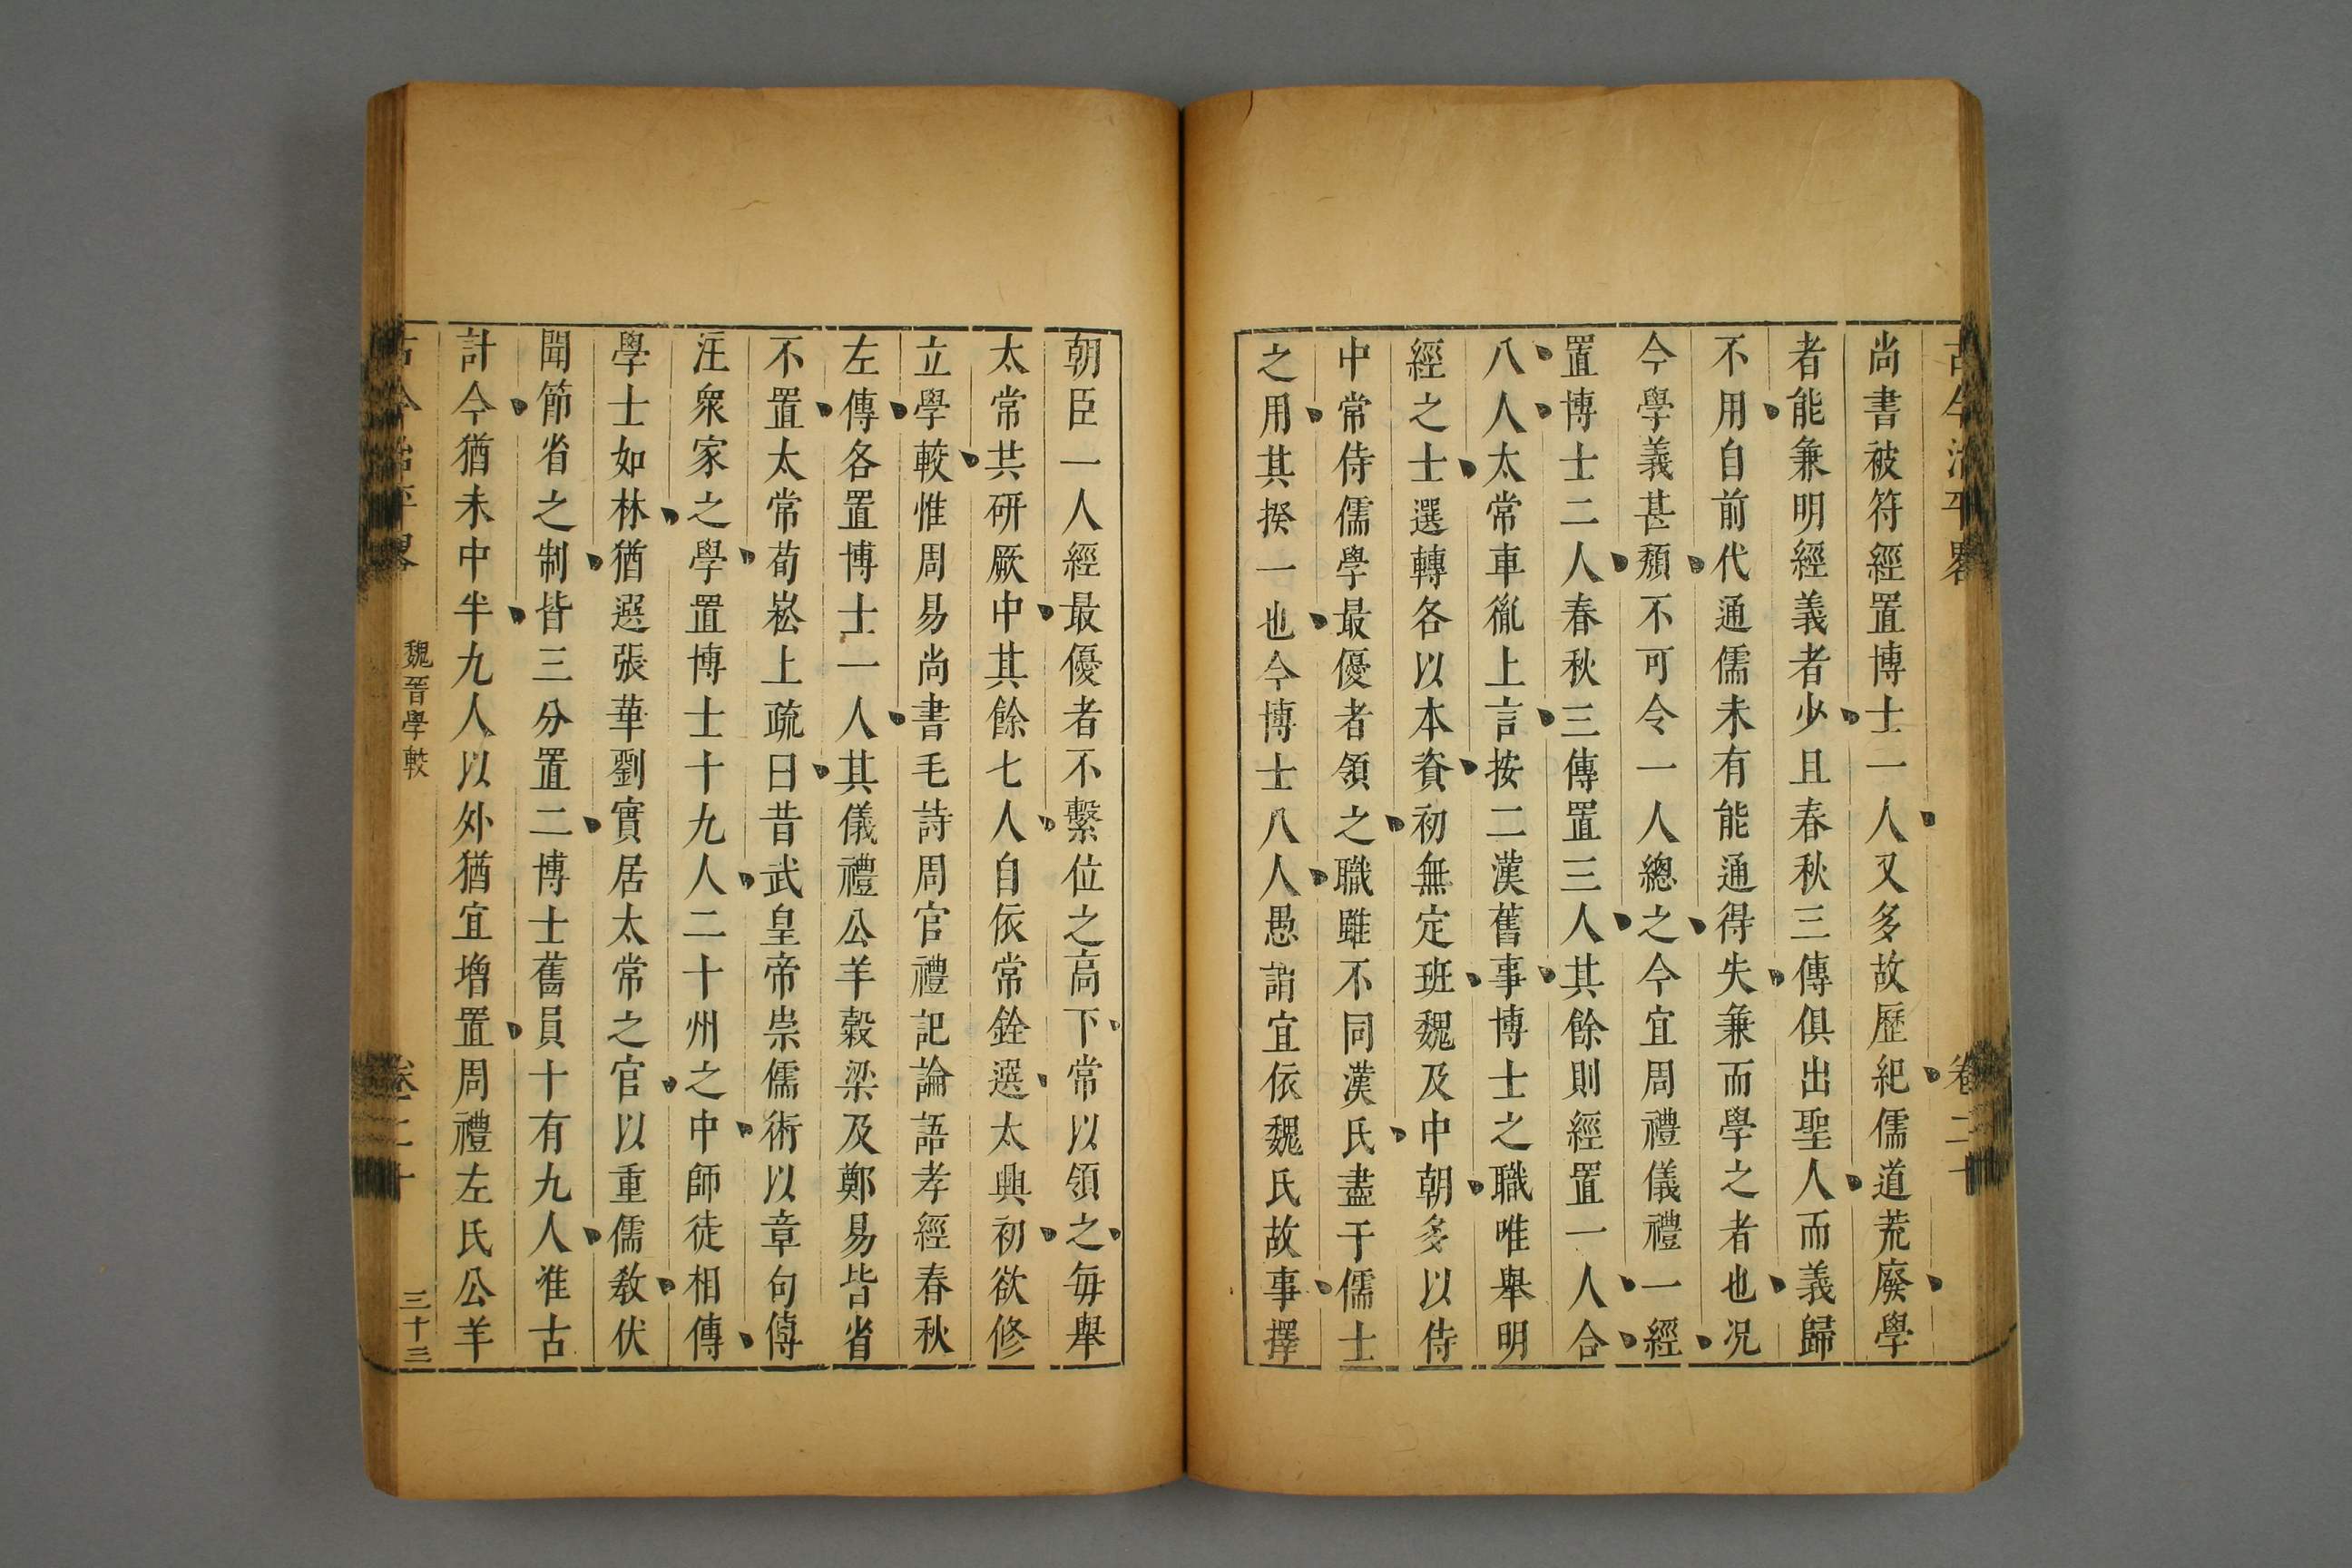 古今治平畧
卷二十
尚書被符經置博士一人又多故歷紀儒道荒廢學
者能兼明經義者少且春秋三傳俱出聖人而義歸
不用自前代通儒未有能通得失兼而學之者也况
今學義甚頹不可令一人總之今宜周禮儀禮一經
置博士二人春秋三傳置三人其餘則經置一人合
八人太常車胤上言按二漢舊事博士之職唯舉明
經之士選轉各以本資初無定班魏及中朝多以侍
中常侍儒學最優者領之職雖不同漢氏盡于儒士
之用其揆一也今博士八人愚謂宜依魏氏故事擇
朝臣一人經最優者不繫位之高下常以領之每舉
太常共研厥中其餘七人自依常銓選太興初欲修
立學較惟周易尚書毛詩周官禮記論語孝經春秋
左傳各置博士一人其儀禮公羊穀梁及鄭易皆省
不置太常荀崧上疏曰昔武皇帝崇儒術以章句傳
注衆家之學置博士十九人二十州之中師徒相傳
學士如林猶選張華劉寔居太常之官以重儒敎伏
聞節省之制皆三分置二博士舊員十有九人准古
計今猶未中半九人以外猶宜增置周禮左氏公羊
古今治平畧
魏晉學較
卷二十
三十三